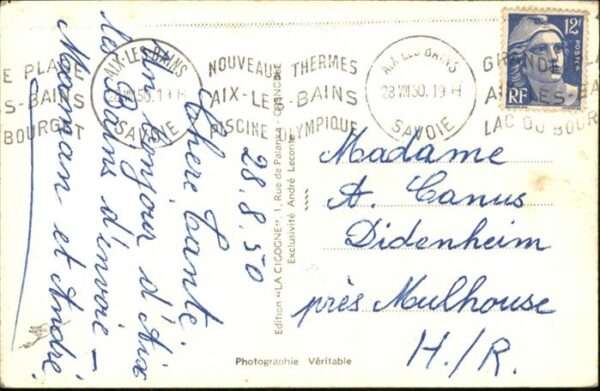 28.8.50
Chère Tante
Un bonjour d'Aix
les Bains d'envoie –
Maman et André
Edition "LA CIGOGNE", 1, Rue de Palanka - GRENOBLE
Exclusivité André Leconte
Photographie Véritable
E PLAGE
S-BAINS
BOURGET
AIX-LES-BAINS
SAVOIE
NOUVEAUX THERMES
AIX-LES-BAINS
PISCINE OLYMPIQUE
AIX-LES-BAINS
28 VIII 50. 19 H
SAVOIE
GRANDE PLA
AIX-LES-BA
LAC DU BOUR
12F
POSTES
RF
Madame
A. Canus
Didenheim
près Mulhouse
H./R.